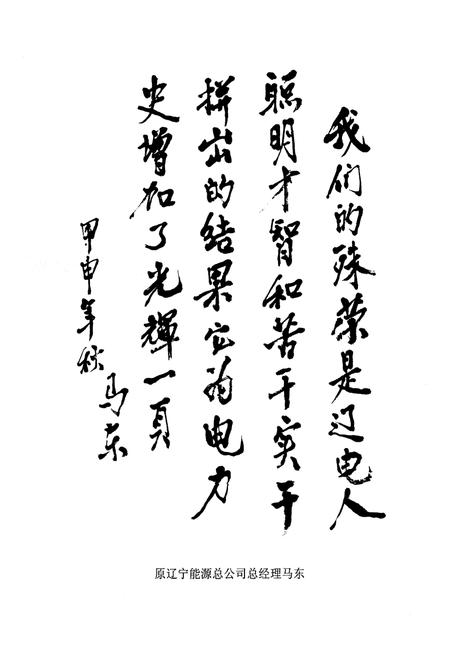 我们的殊荣是辽电人
聪明才智和苦干实干
拼出的结果它为电力
史增加了光辉一页
甲申年秋
马东
原辽宁能源总公司总经理马东